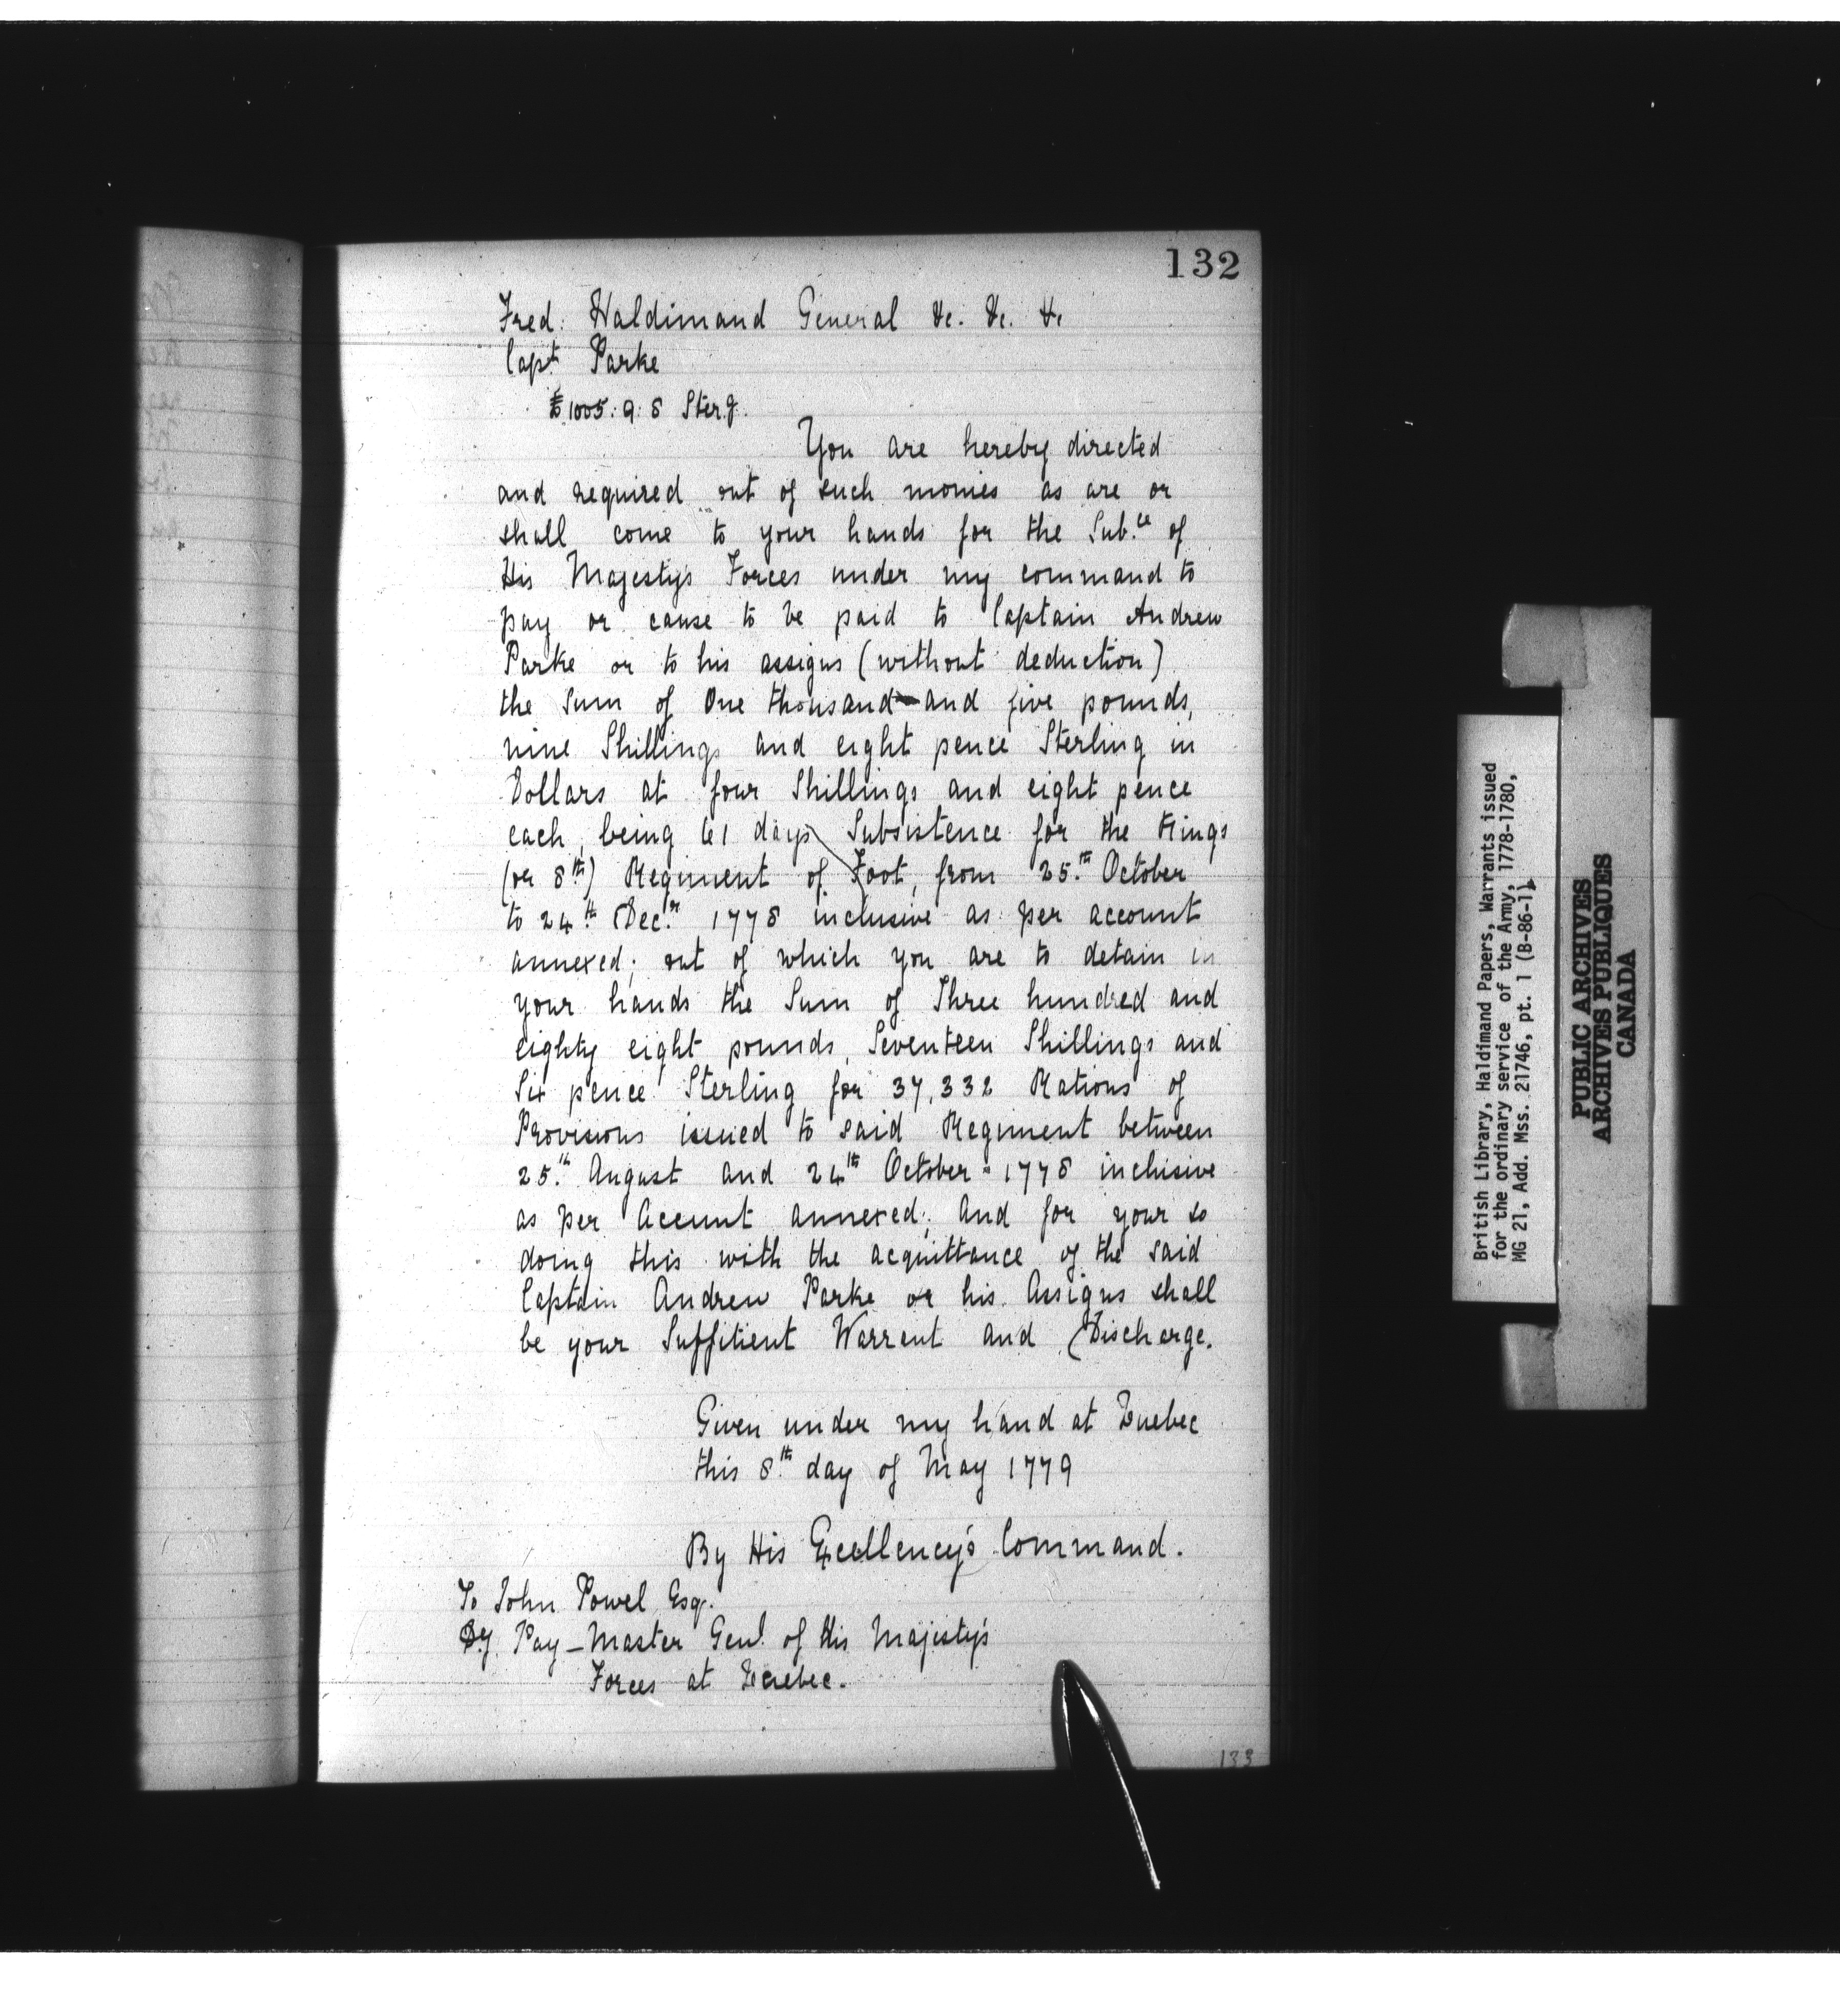 132
Fred: Haldimand General &c. &c. &c
Capt. Parke
£1005: 9: 8 Sterg.
You are hereby directed
and required out of such monies as are or
shall come to your hands for the Sub.ce of
His Majestys Forces under my command to
pay or cause to be paid to Captain Andrew
Parke or to his assigns (without deduction)
the Sum of One thousand and five pounds,
nine Shillings and eight pence Sterling in
Dollars at four Shillings and eight pence
each, being 61 days Subsistence for the Kings
(or 8th) Regiment of Foot, from 25.th October
to 24.th Dec.r 1778 inclusive as per account
annexed; out of which you are to detain in
your hands the Sum of Three hundred and
eighty eight pounds, Seventeen Shillings and
Six pence Sterling for 37,332 Rations of
Provisions issued to said Regiment between
25.th August and 24th October 1778 inclusive
as per Account annexed; And for your so
doing this with the acquittance of the said
Captain Andrew Parke or his Assigns shall
be your Suffitient Warrent and Discharge.
Given under my hand at Quebec
this 8th day of May 1779
By His Excellency's Command.
To John Powel Esq.
Dy. Pay-Master Genl. of His Majesty's
Forces at Quebec.
133
British Library, Haldimand Papers, Warrants issued
for the ordinary service of the Army, 1778-1780,
MG 21, Add. Mss. 21746, pt. 1 (B-86-1)
PUBLIC ARCHIVES
ARCHIVES PUBLIQUES
CANADA